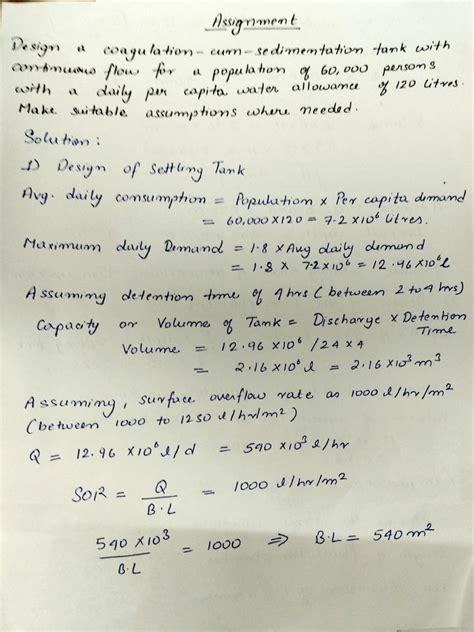 Assignment
Design a coagulation-cum-sedimentation tank with
continuous flow for a population of 60,000 persons
with a daily per capita water allowance of 120 litres.
Make suitable assumptions where needed.
Solution:
1) Design of Settling Tank
Avg. daily consumption = Population x Per capita demand
= 60,000 X120 = 7.2 X10⁶ litres.
Maximum daily Demand = 1.8 x Avg daily demand
= 1.8 x 7.2x10⁶ = 12.96 X10⁶ l
Assuming detention time of 4 hrs (between 2 to 4 hrs)
Capacity or Volume of Tank = Discharge x Detention
Time
Volume = 12.96 x10⁶ / 24 x 4
= 2.16 X10⁶ l = 2.16 X10³ m³
Assuming, surface overflow rate as 1000 l/hr/m²
(between 1000 to 1250 l/hr/m²)
Q = 12.96 X10⁶ l/d = 540 X10³ l/hr
SOR = Q / B.L = 1000 l/hr/m²
540 X10³ / B.L = 1000 ⇒ B.L = 540 m²